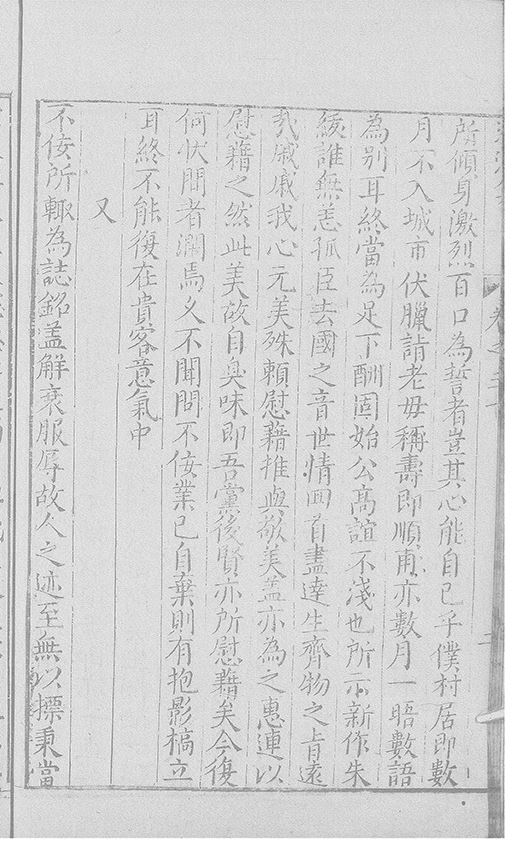 所傾身激烈百口為誓者豈其心能自已乎僕村居即數
月不入城市伏臘詣老母稱壽即順甫亦數月一晤數語
為別耳終當為足下酬固始公高誼不淺也所示新作朱
綾誰無恙孤臣去國之音世情回首盡達生齊物之旨遠
我戚戚我心元美殊賴慰藉推與敬美盖亦為之惠連以
慰藉之然此美故自臭味即吾黨後賢亦所慰藉矣今復
何狀間者濶焉久不聞問不佞業已自棄則有抱影槁立
耳終不能復在貴客意氣中
又
不佞所輙為誌銘盖解衰服辱故人之迹至無以摽秉當